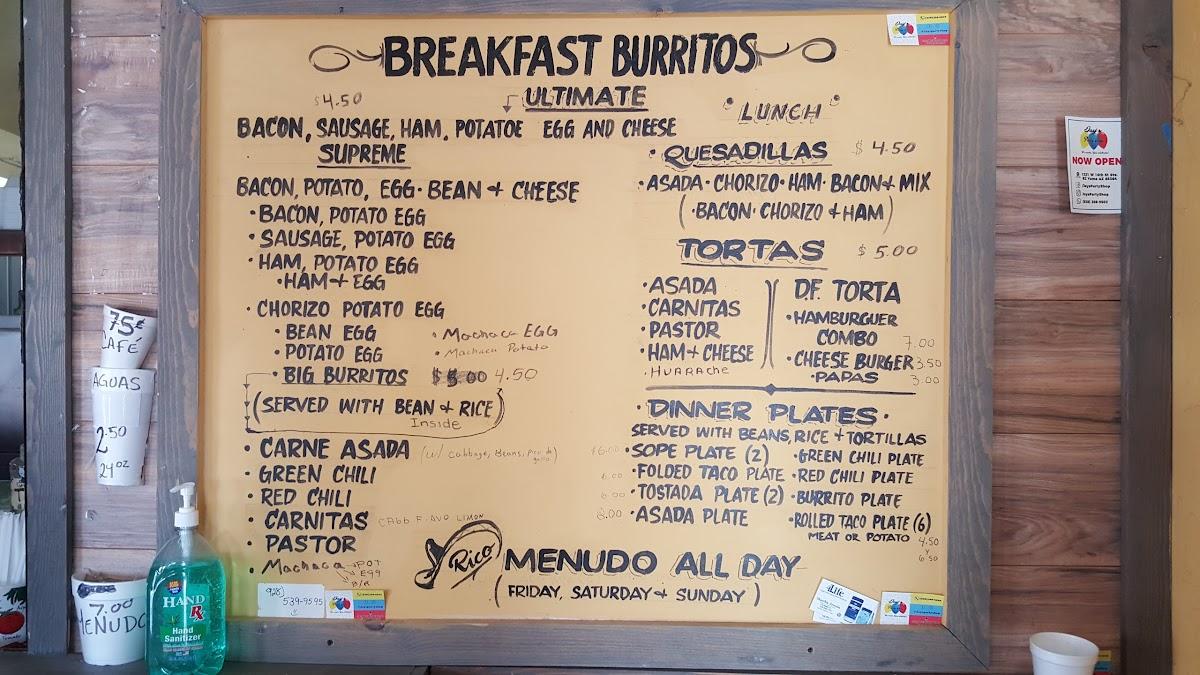 BREAKFAST BURRITOS
$4.50
ULTIMATE
BACON, SAUSAGE, HAM, POTATOE EGG AND CHEESE
SUPREME
BACON, POTATO, EGG · BEAN + CHEESE
· BACON, POTATO EGG
· SAUSAGE, POTATO EGG
· HAM, POTATO EGG
· HAM + EGG
· CHORIZO POTATO EGG
· BEAN EGG
· Machaca EGG
· POTATO EGG
· Machaca Potato
· BIG BURRITOS 4.50
(SERVED WITH BEAN + RICE)
Inside
· CARNE ASADA (w/ Cabbage, Beans, Pico de gallo)
· GREEN CHILI
· RED CHILI
· CARNITAS
· PASTOR
· Machaca POT
EGG
B/R
· LUNCH ·
· QUESADILLAS $4.50
· ASADA · CHORIZO · HAM · BACON + MIX
(· BACON · CHORIZO + HAM)
TORTAS $5.00
· ASADA
· CARNITAS
· PASTOR
· HAM + CHEESE
· HUARACHE
D.F. TORTA
· HAMBURGUER
COMBO 7.00
· CHEESE BURGER 3.50
· PAPAS 3.00
· DINNER PLATES ·
SERVED WITH BEANS, RICE + TORTILLAS
· SOPE PLATE (2)
6.00 · FOLDED TACO PLATE
6.00 · TOSTADA PLATE (2)
· ASADA PLATE
· GREEN CHILI PLATE
· RED CHILI PLATE
· BURRITO PLATE
· ROLLED TACO PLATE (6)
MEAT OR POTATO 4.50
y
6.50
Rico MENUDO ALL DAY
(FRIDAY, SATURDAY + SUNDAY)
(928)
539-9595
iLife
NOW OPEN
75¢
CAFÉ
AGUAS
2.50
24 oz
7.00
MENUDO
HAND
Rx
Hand
Sanitizer